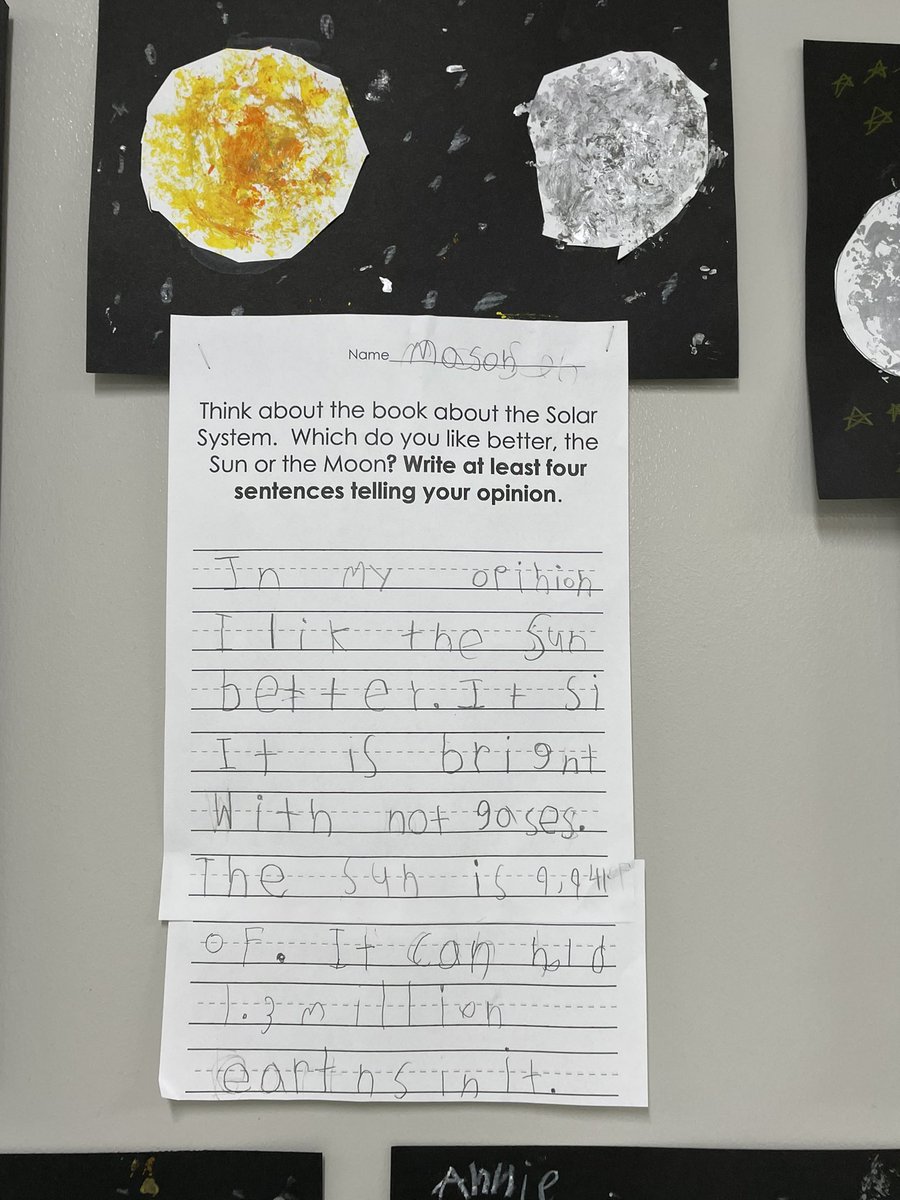 Name Mason
Think about the book about the Solar
System. Which do you like better, the
Sun or the Moon? Write at least four
sentences telling your opinion.
In my opinion
I lik the Sun
better. It si
It is brignt
With not gases.
The Sun is
oF. It Can hold
1.3 million
earths in it.
Annie